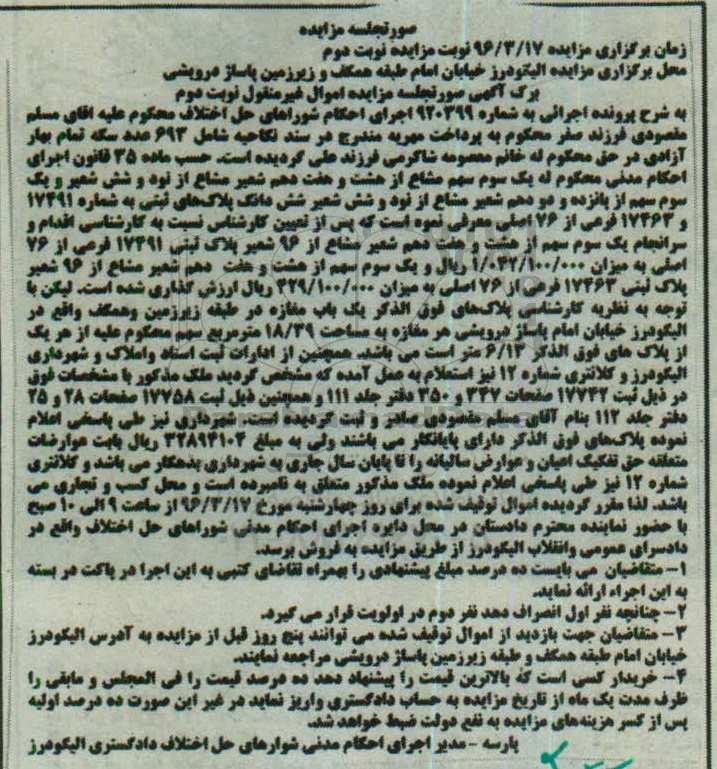 صورتجلسه مزایده
زمان برگزاری مزایده ۹۶/۳/۱۷ نوبت مزایده نوبت دوم
محل برگزاری مزایده الیگودرز خیابان امام طبقه همکف و زیرزمین پاساژ درویشی
برگ آگهی صورتجلسه مزایده اموال غیرمنقول نوبت دوم
به شرح پرونده اجرائی به شماره ۹۲۰۳۹۹ اجرای احکام شوراهای حل اختلاف محکوم علیه اقای مسلم
مقصودی فرزند صفر محکوم به پرداخت مهریه مندرج در سند نکاحیه شامل ۶۹۳ عدد سکه تمام بهار
آزادی در حق محکوم له خانم معصومه شاکرمی فرزند علی گردیده است. حسب ماده ۳۵ قانون اجرای
احکام مدنی محکوم له یک سوم سهم مشاع از هشت و هفت دهم شعیر مشاع از نود و شش شعیر و یک
سوم سهم از پانزده و دو دهم شعیر مشاع از نود و شش شعیر شش دانگ پلاک‌های ثبتی به شماره ۱۷۴۹۱
و ۱۷۴۶۳ فرعی از ۷۶ اصلی معرفی نموده است که پس از تعیین کارشناس نسبت به کارشناسی اقدام و
سرانجام یک سوم سهم از هشت و هفت دهم شعیر مشاع از ۹۶ شعیر پلاک ثبتی ۱۷۴۹۱ فرعی از ۷۶
اصلی به میزان ۱/۰۴۲/۱۰۰/۰۰۰ ریال و یک سوم سهم از هشت و هفت دهم شعیر مشاع از ۹۶ شعیر
پلاک ثبتی ۱۷۴۶۳ فرعی از ۷۶ اصلی به میزان ۳۲۹/۱۰۰/۰۰۰ ریال ارزش گذاری شده است. لیکن با
توجه به نظریه کارشناسی پلاک‌های فوق الذکر یک باب مغازه در طبقه زیرزمین وهمکف واقع در
الیگودرز خیابان امام پاساژ درویشی هر مغازه به مساحت ۱۸/۳۹ مترمربع سهم محکوم علیه از هر یک
از پلاک های فوق الذکر ۶/۱۳ متر است می باشد. همچنین از ادارات ثبت اسناد واملاک و شهرداری
الیگودرز و کلانتری شماره ۱۲ نیز استعلام به عمل آمده که مشخص گردید ملک مذکور با مشخصات فوق
در ذیل ثبت ۱۷۷۴۲ صفحات ۳۴۷ و ۳۵۰ دفتر جلد ۱۱۱ و همچنین ذیل ثبت ۱۷۷۵۸ صفحات ۲۸ و ۲۵
دفتر جلد ۱۱۲ بنام آقای مسلم مقصودی صادر و ثبت گردیده است. شهرداری نیز طی پاسخی اعلام
نموده پلاک‌های فوق الذکر دارای پایانکار می باشند ولی به مبلغ ۳۲۸۹۳۱۰۴ ریال بابت عوارضات
متعلقه حق تفکیک اعیان و عوارض سالیانه را تا پایان سال جاری به شهرداری بدهکار می باشد و کلانتری
شماره ۱۲ نیز طی پاسخی اعلام نموده ملک مذکور متعلق به نامبرده است و محل کسب و تجاری می
باشد. لذا مقرر گردیده اموال توقیف شده برای روز چهارشنبه مورخ ۹۶/۳/۱۷ از ساعت ۹ الی ۱۰ صبح
با حضور نماینده محترم دادستان در محل دایره اجرای احکام مدنی شوراهای حل اختلاف واقع در
دادسرای عمومی وانقلاب الیگودرز از طریق مزایده به فروش برسد.
۱- متقاضیان می بایست ده درصد مبلغ پیشنهادی را بهمراه تقاضای کتبی به این اجرا در پاکت در بسته
به این اجراء ارائه نماید.
۲- چنانچه نفر اول انصراف دهد نفر دوم در اولویت قرار می گیرد.
۳- متقاضیان جهت بازدید از اموال توقیف شده می توانند پنج روز قبل از مزایده به آدرس الیگودرز
خیابان امام طبقه همکف و طبقه زیرزمین پاساژ درویشی مراجعه نمایند.
۴- خریدار کسی است که بالاترین قیمت را پیشنهاد دهد ده درصد قیمت را فی المجلس و مابقی را
ظرف مدت یک ماه از تاریخ مزایده به حساب دادگستری واریز نماید در غیر این صورت ده درصد اولیه
پس از کسر هزینه‌های مزایده به نفع دولت ضبط خواهد شد.
پارسه - مدیر اجرای احکام مدنی شوارهای حل اختلاف دادگستری الیگودرز